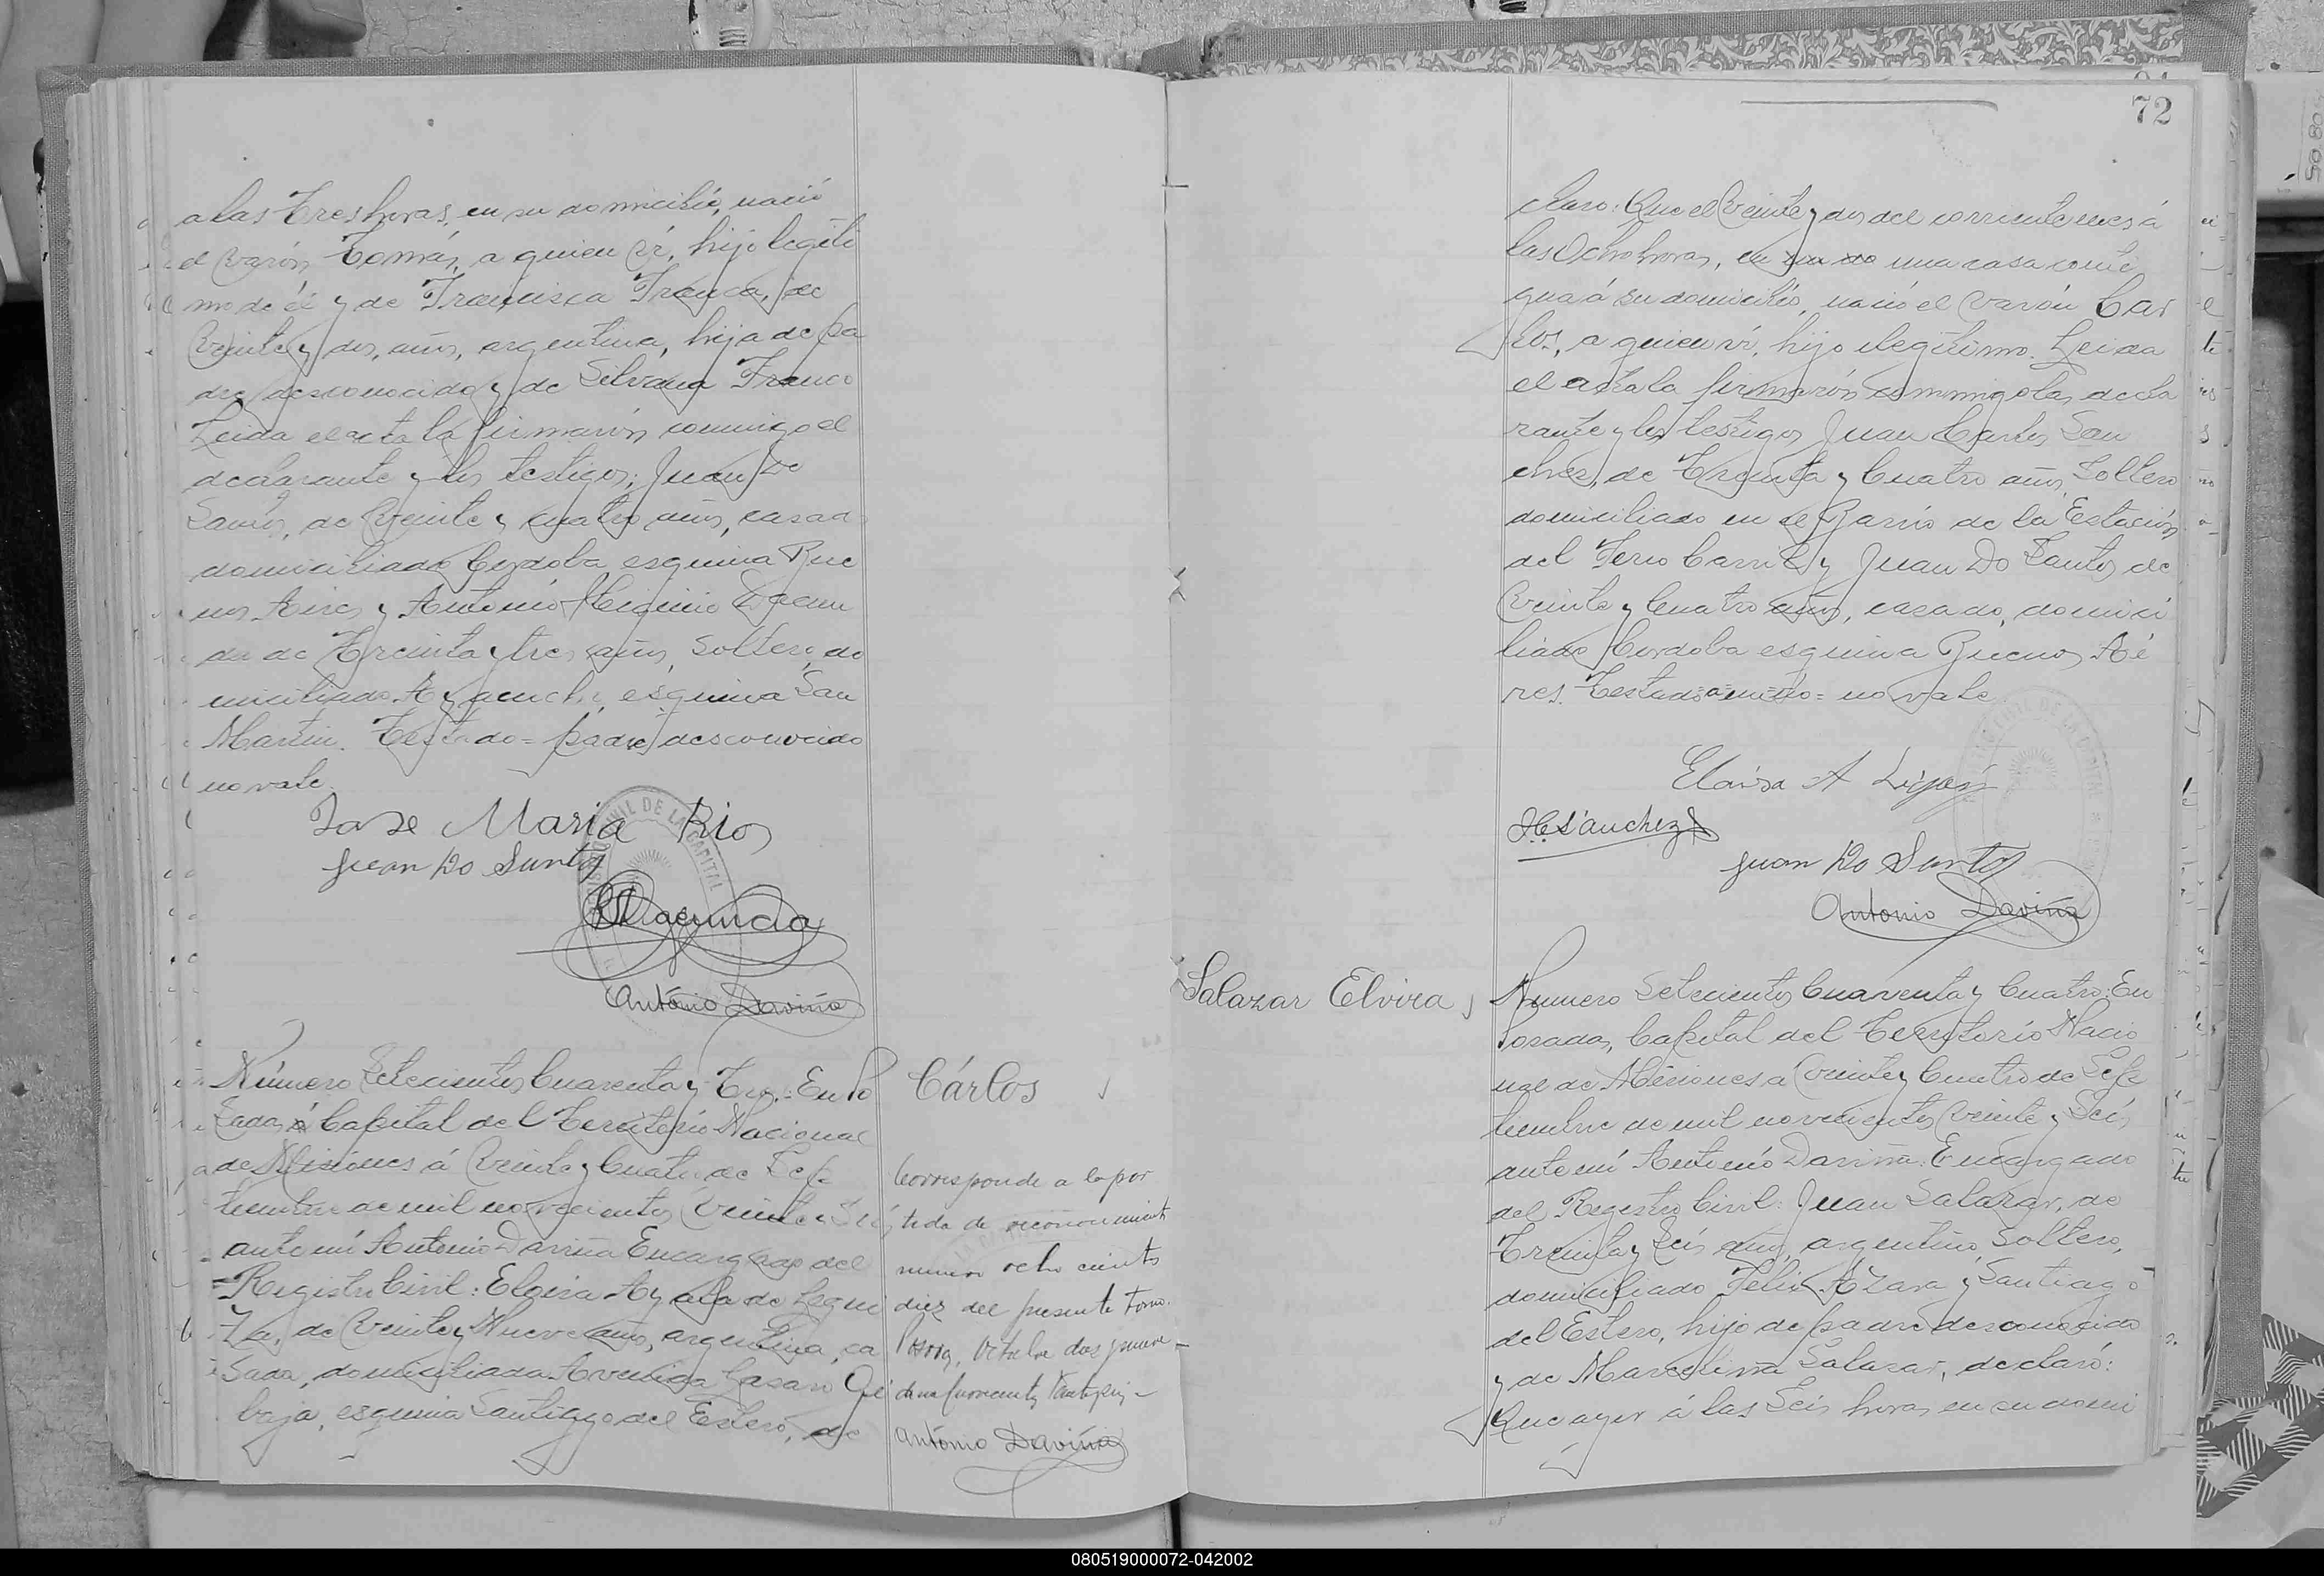 a las Tres horas, en su domicilio, nació
el varón Tomás, a quien ví, hijo legíti
mo de él y de Francisca Franca, de
Veinte y dos, años, argentina, hija de pa
dre desconocido y de Silvana Franco
Leida el acta la firmarón conmigo el
declarante y los testigos; Juan Do
Santos, de Veinte y cuatro años, casado
domiciliado Cordoba esquina Bue
nos Aires y Antonio Higinio Dacun
da de Treinta y tres años, Soltero, do
miciliado Ayacucho, esquina San
Martin. Testado = padre desconocido
no vale.
Jose Maria Rios
Juan Do Santos
Dacunda
Antonio Daviña
Número Setecientos Cuarenta y Tres: En Po
sadas á Capital del Territorio Nacional
de Misiones á Veinte y Cuatro de Sep
tiembre de mil novecientos Veinte y Seis
ante mí Antonio Daviña Encargado del
Registro Civil: Eloisa Ayala de Legui
za, de Veinte y Nueve años, argentina, ca
sada, domiciliada Avenida Lasaro Gi
baja, esquina Santiago del Estero, de
Cárlos
Corresponde a la par
tida de reconocimiento
numero ocho cientos
diez del presente tomo.
Posadas, Octubre dos
Antonio Daviña
72
claro: Que el Veinte y dos del corriente mes á
las Ocho horas, en su do una casa conti
gua á su domicilio, nació el varón Car
los, a quien ví, hijo ilegitimo. Leida
el acta la firmarón conmigo la decla
rante y los testigos Juan Carlos San
chez, de Treinta y Cuatro años, Soltero
domiciliado en el Barrio de la Estación
del Ferro Carril y Juan Do Santos de
Veinte y Cuatro años, casado, domici
liado Cordoba esquina Buenos Ai
res. Testado = no vale
Eloisa A
J C Sánchez
Juan Do Santos
Antonio Daviña
Salazar Elvira
Numero Setecientos Cuarenta y Cuatro: En
Posadas, Capital del Territorio Nacio
nal de Misiones á Veinte y Cuatro de Sep
tiembre de mil novecientos Veinte y Seis
ante mí Antonio Daviña: Encargado
del Registro Civil: Juan Salazar, de
Treinta y Seis años, argentino, Soltero,
domiciliado Félix Azara y Santiago
del Estero, hijo de padre desconocido
y de Marcelina Salazar, declaró:
Que ayer á las Seis horas en su domi
080519000072-042002